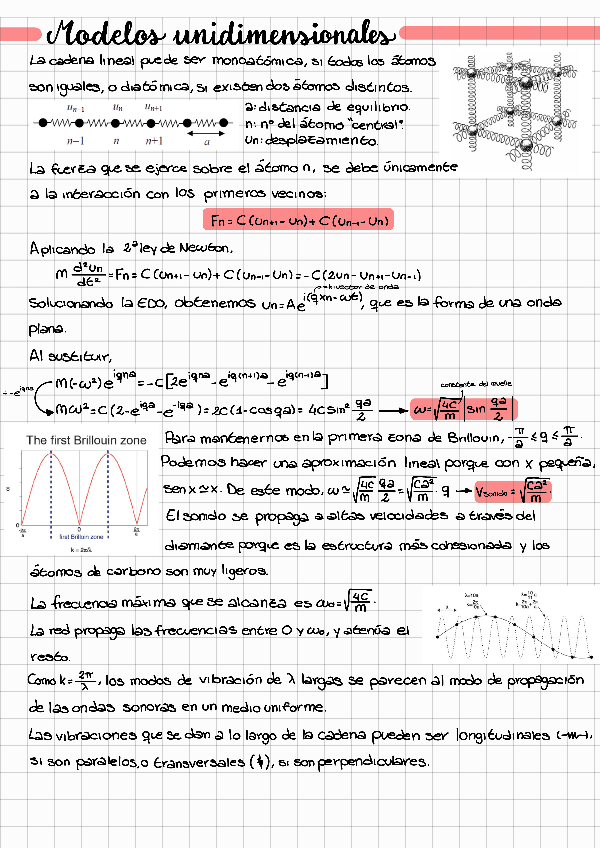 Modelos unidimensionales
La cadena lineal puede ser monoatómica, si todos los átomos
son iguales, o diatómica, si existen dos átomos distintos.
u_{n-1} u_n u_{n+1}
n-1 n n+1 a
a: distancia de equilibrio.
n: nº del átomo "central".
Un: desplazamiento.
La fuerza que se ejerce sobre el átomo n, se debe únicamente
a la interacción con los primeros vecinos:
Fn = C(Un+1 - Un) + C(Un-1 - Un)
Aplicando la 2ª ley de Newton,
M d²Un/dt² = Fn = C(Un+1 - Un) + C(Un-1 - Un) = -C(2Un - Un+1 - Un-1)
Solucionando la EDO, obtenemos Un = A e^{i(qxn - ωt)}, que es la forma de una onda
plana.
Al sustituir,
M(-ω²)e^{iqna} = -C[2e^{iqna} - e^{iq(n+1)a} - e^{iq(n-1)a}]
÷ -e^{iqna}
Mω² = C(2 - e^{iqa} - e^{-iqa}) = 2C(1 - cos qa) = 4C sin² qa/2 → ω = √(4C/M) |sin qa/2|
constante del muelle
The first Brillouin zone
first Brilluin zone
k = 2π/λ
Para mantenernos en la primera zona de Brillouin, -π/a ≤ q ≤ π/a.
Podemos hacer una aproximación lineal porque con x pequeña,
sen x ≃ x. De este modo, ω ≃ √(4C/M) qa/2 = √(Ca²/M) · q → Vsonido = √(Ca²/M).
El sonido se propaga a altas velocidades a través del
diamante porque es la estructura más cohesionada y los
átomos de carbono son muy ligeros.
La frecuencia máxima que se alcanza es ω₀ = √(4C/M).
La red propaga las frecuencias entre 0 y ω₀, y atenúa el
resto.
Como k = 2π/λ, los modos de vibración de λ largas se parecen al modo de propagación
de las ondas sonoras en un medio uniforme.
Las vibraciones que se dan a lo largo de la cadena pueden ser longitudinales
si son paralelos, o transversales, si son perpendiculares.